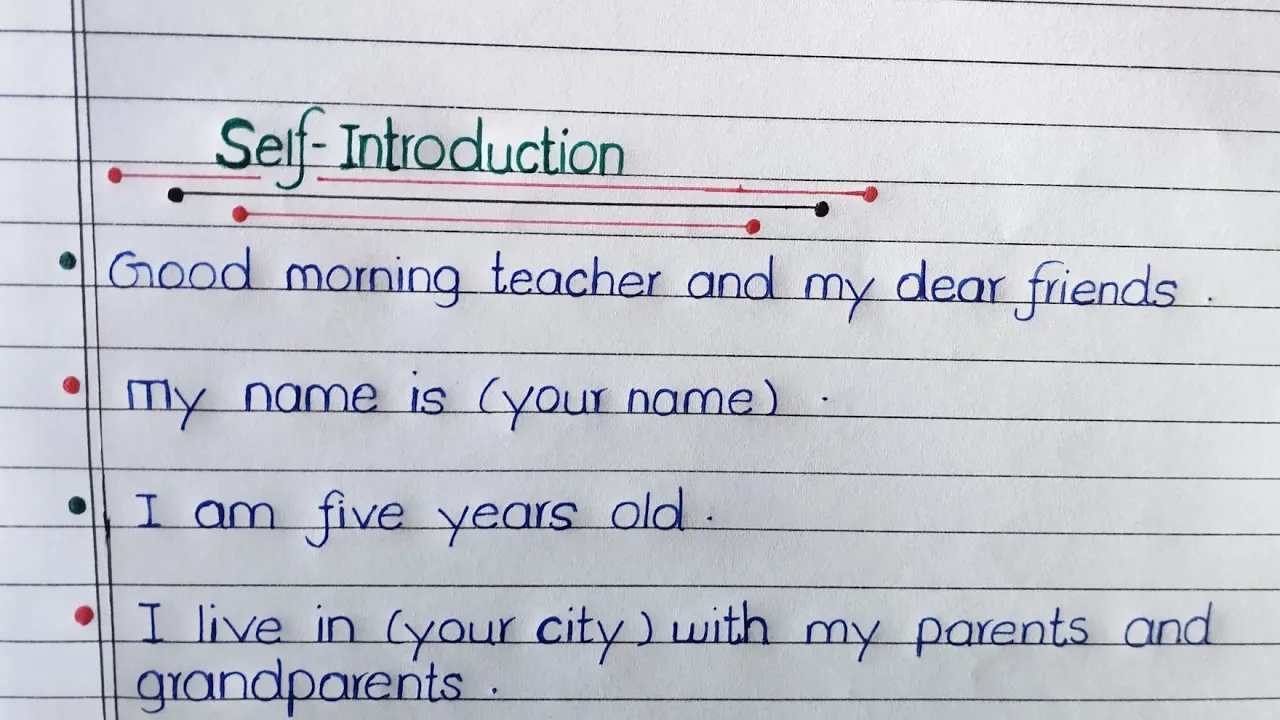 Self-Introduction
Good morning teacher and my dear friends .
My name is (your name) .
I am five years old .
I live in (your city) with my parents and
grandparents .